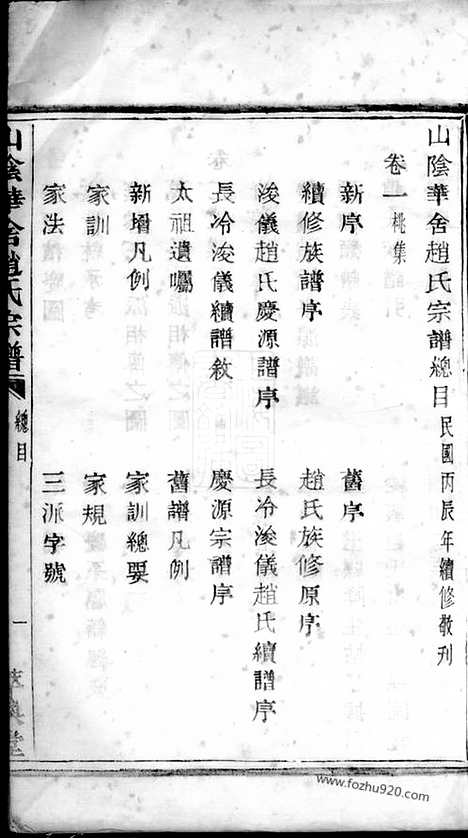 山陰華舍趙氏宗譜總目 民國丙辰年續修敬刊
卷一 桃集
新序 舊序
續修族譜序 趙氏族修原序
浚儀趙氏慶源序 長冷浚儀趙氏續譜序
長冷浚儀續譜敘 慶源宗譜序
太祖遺囑 舊譜凡例
新增凡例 家訓總要
家訓 家規
家法 三派字號
山陰華舍趙氏宗譜 總目 一
www.fozhu920.com